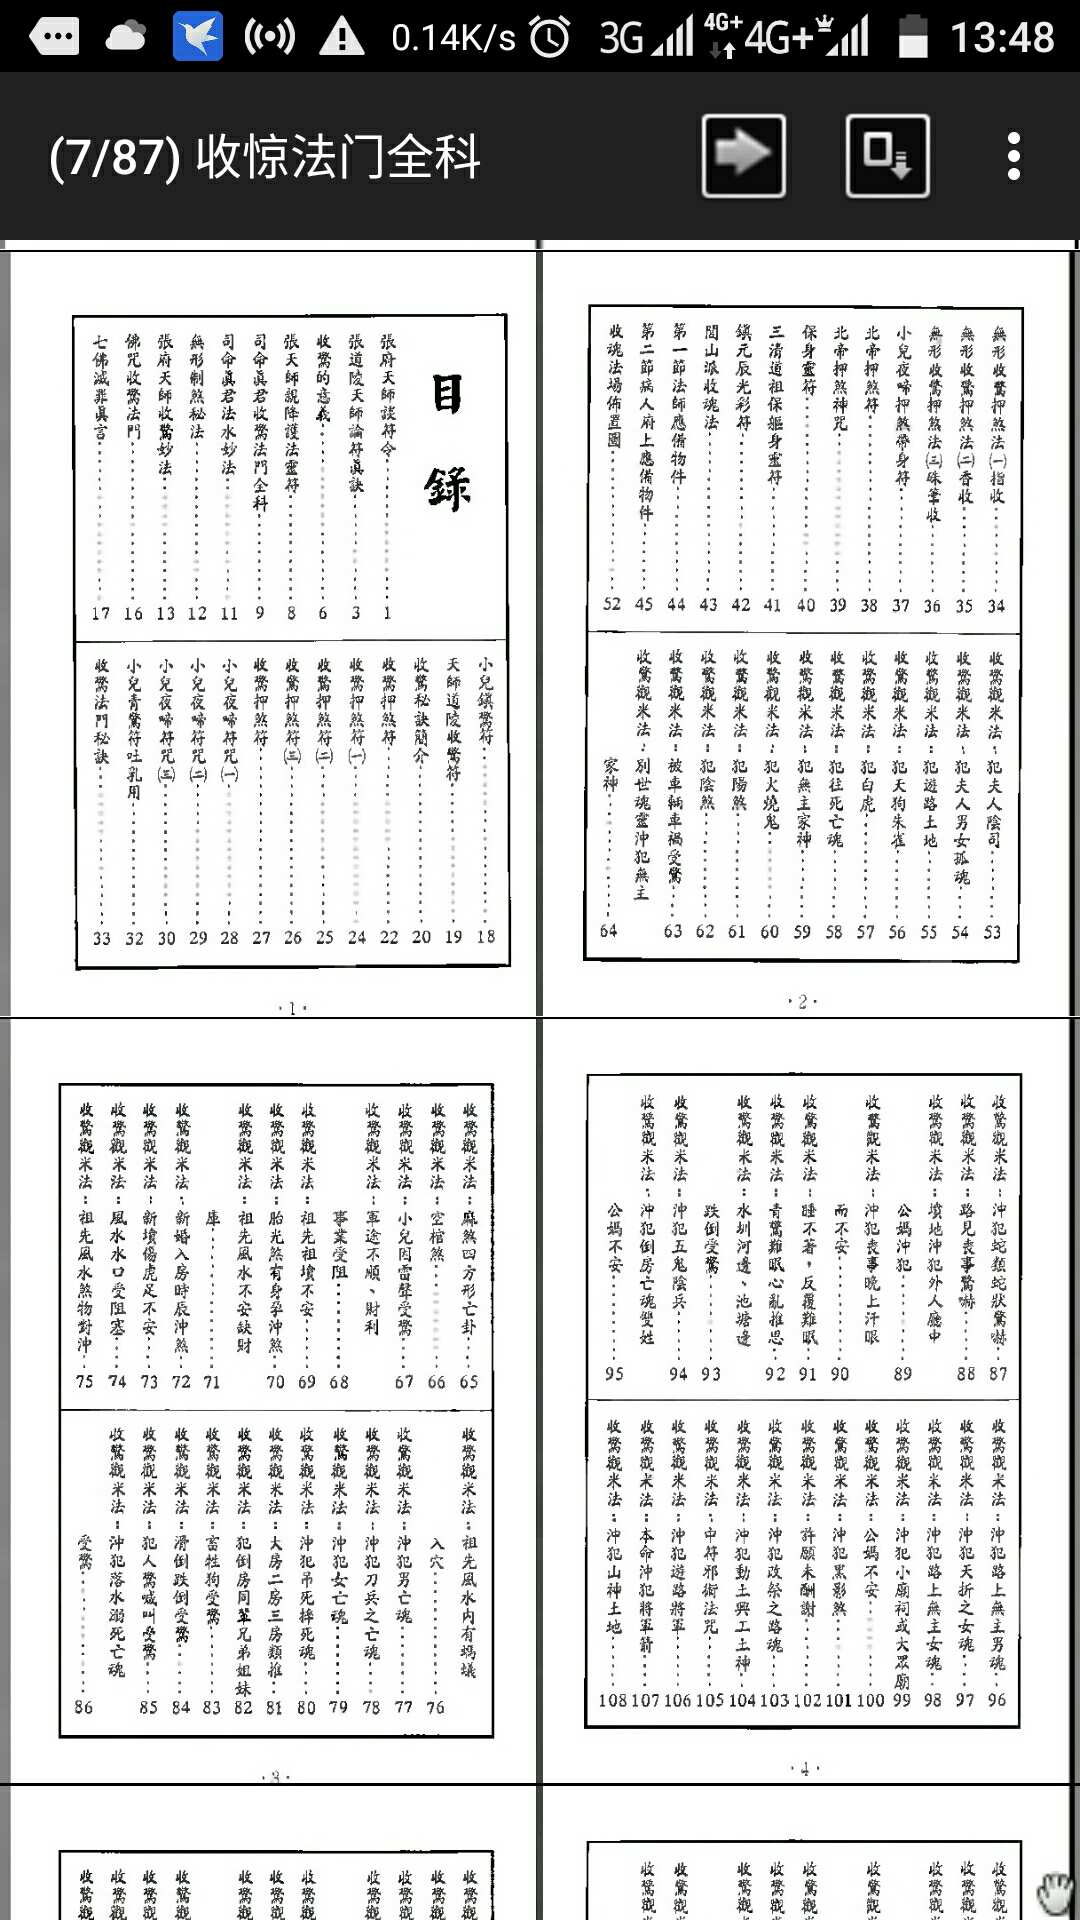 0.14K/s 3G 4G+ 4G+ 13:48
(7/87) 收惊法门全科
目錄
張府天師談符令 1
張道陵天師論符眞訣 3
收驚的意義 6
張天師説降護法靈符 8
司命眞君收驚法門全科 9
司命眞君法水妙法 11
無形制煞秘法 12
張府天師收驚妙法 13
佛咒收驚法門 16
七佛滅罪眞言 17
小兒鎮驚符 18
天師道陵收驚符 19
收驚秘訣簡介 20
收驚押煞符 22
收驚押煞符㈠ 24
收驚押煞符㈡ 25
收驚押煞符㈢ 26
收驚押煞符 27
小兒夜啼符咒㈠ 28
小兒夜啼符咒㈡ 29
小兒夜啼符咒㈢ 30
小兒青驚符吐乳用 32
收驚法門秘訣 33
·1·
無形收驚押煞法㈠指收 34
無形收驚押煞法㈡香收 35
無形收驚押煞法㈢硃筆收 36
小兒夜啼押煞帶身符 37
北帝押煞符 38
北帝押煞神咒 39
保身靈符 40
三清道祖保軀身靈符 41
鎮元辰光彩符 42
閭山派收魂法 43
第一節法師應備物件 44
第二節病人府上應備物件 45
收魂法場佈置圖 52
收驚觀米法：犯夫人陰司 53
收驚觀米法：犯夫人男女孤魂 54
收驚觀米法：犯遊路土地 55
收驚觀米法：犯天狗朱雀 56
收驚觀米法：犯白虎 57
收驚觀米法：犯往死亡魂 58
收驚觀米法：犯無主家神 59
收驚觀米法：犯火燒鬼 60
收驚觀米法：犯陽煞 61
收驚觀米法：犯陰煞 62
收驚觀米法：被車輛車禍受驚 63
收驚觀米法：別世魂靈沖犯無主
家神 64
·2·
收驚觀米法：麻煞四方形亡卦 65
收驚觀米法：空棺煞 66
收驚觀米法：小兒因雷聲受驚 67
收驚觀米法：軍途不順、財利
事業受阻 68
收驚觀米法：祖先祖墳不安 69
收驚觀米法：胎光煞有身孕沖煞 70
收驚觀米法：祖先風水不安缺財
庫 71
收驚觀米法：新婚入房時辰沖煞 72
收驚觀米法：新墳傷虎足不安 73
收驚觀米法：風水水口受阻塞 74
收驚觀米法：祖先風水煞物對沖 75
收驚觀米法：祖先風水內有螞蟻
入穴 76
收驚觀米法：沖犯男亡魂 77
收驚觀米法：沖犯刀兵之亡魂 78
收驚觀米法：沖犯女亡魂 79
收驚觀米法：沖犯吊死摔死魂 80
收驚觀米法：大房二房三房類推 81
收驚觀米法：犯倒房同輩兄弟姐妹 82
收驚觀米法：畜牲狗受驚 83
收驚觀米法：滑倒跌倒受驚 84
收驚觀米法：犯人驚喊叫受驚 85
收驚觀米法：沖犯落水溺死亡魂
受驚 86
·3·
收驚觀米法：沖犯蛇類蛇狀驚嚇 87
收驚觀米法：路見喪事驚嚇 88
收驚觀米法：墳地沖犯外人廳中
公媽沖犯 89
收驚觀米法：沖犯喪事晚上汗眼
而不安 90
收驚觀米法：睡不著，反覆難眠 91
收驚觀米法：青驚難眠心亂推思 92
收驚觀米法：水圳河邊、池塘邊
跌倒受驚 93
收驚觀米法：沖犯五鬼陰兵 94
收驚觀米法：沖犯倒房亡魂雙姓
公媽不安 95
收驚觀米法：沖犯路上無主男魂 96
收驚觀米法：沖犯夭折之女魂 97
收驚觀米法：沖犯路上無主女魂 98
收驚觀米法：沖犯小廟祠或大眾廟 99
收驚觀米法：公媽不安 100
收驚觀米法：沖犯黑影煞 101
收驚觀米法：許願未酬謝 102
收驚觀米法：沖犯改祭之路魂 103
收驚觀米法：沖犯動土興工土神 104
收驚觀米法：中符邪術法咒 105
收驚觀米法：沖犯遊路將軍 106
收驚觀米法：本命沖犯將軍箭 107
收驚觀米法：沖犯山神土地 108
·4·